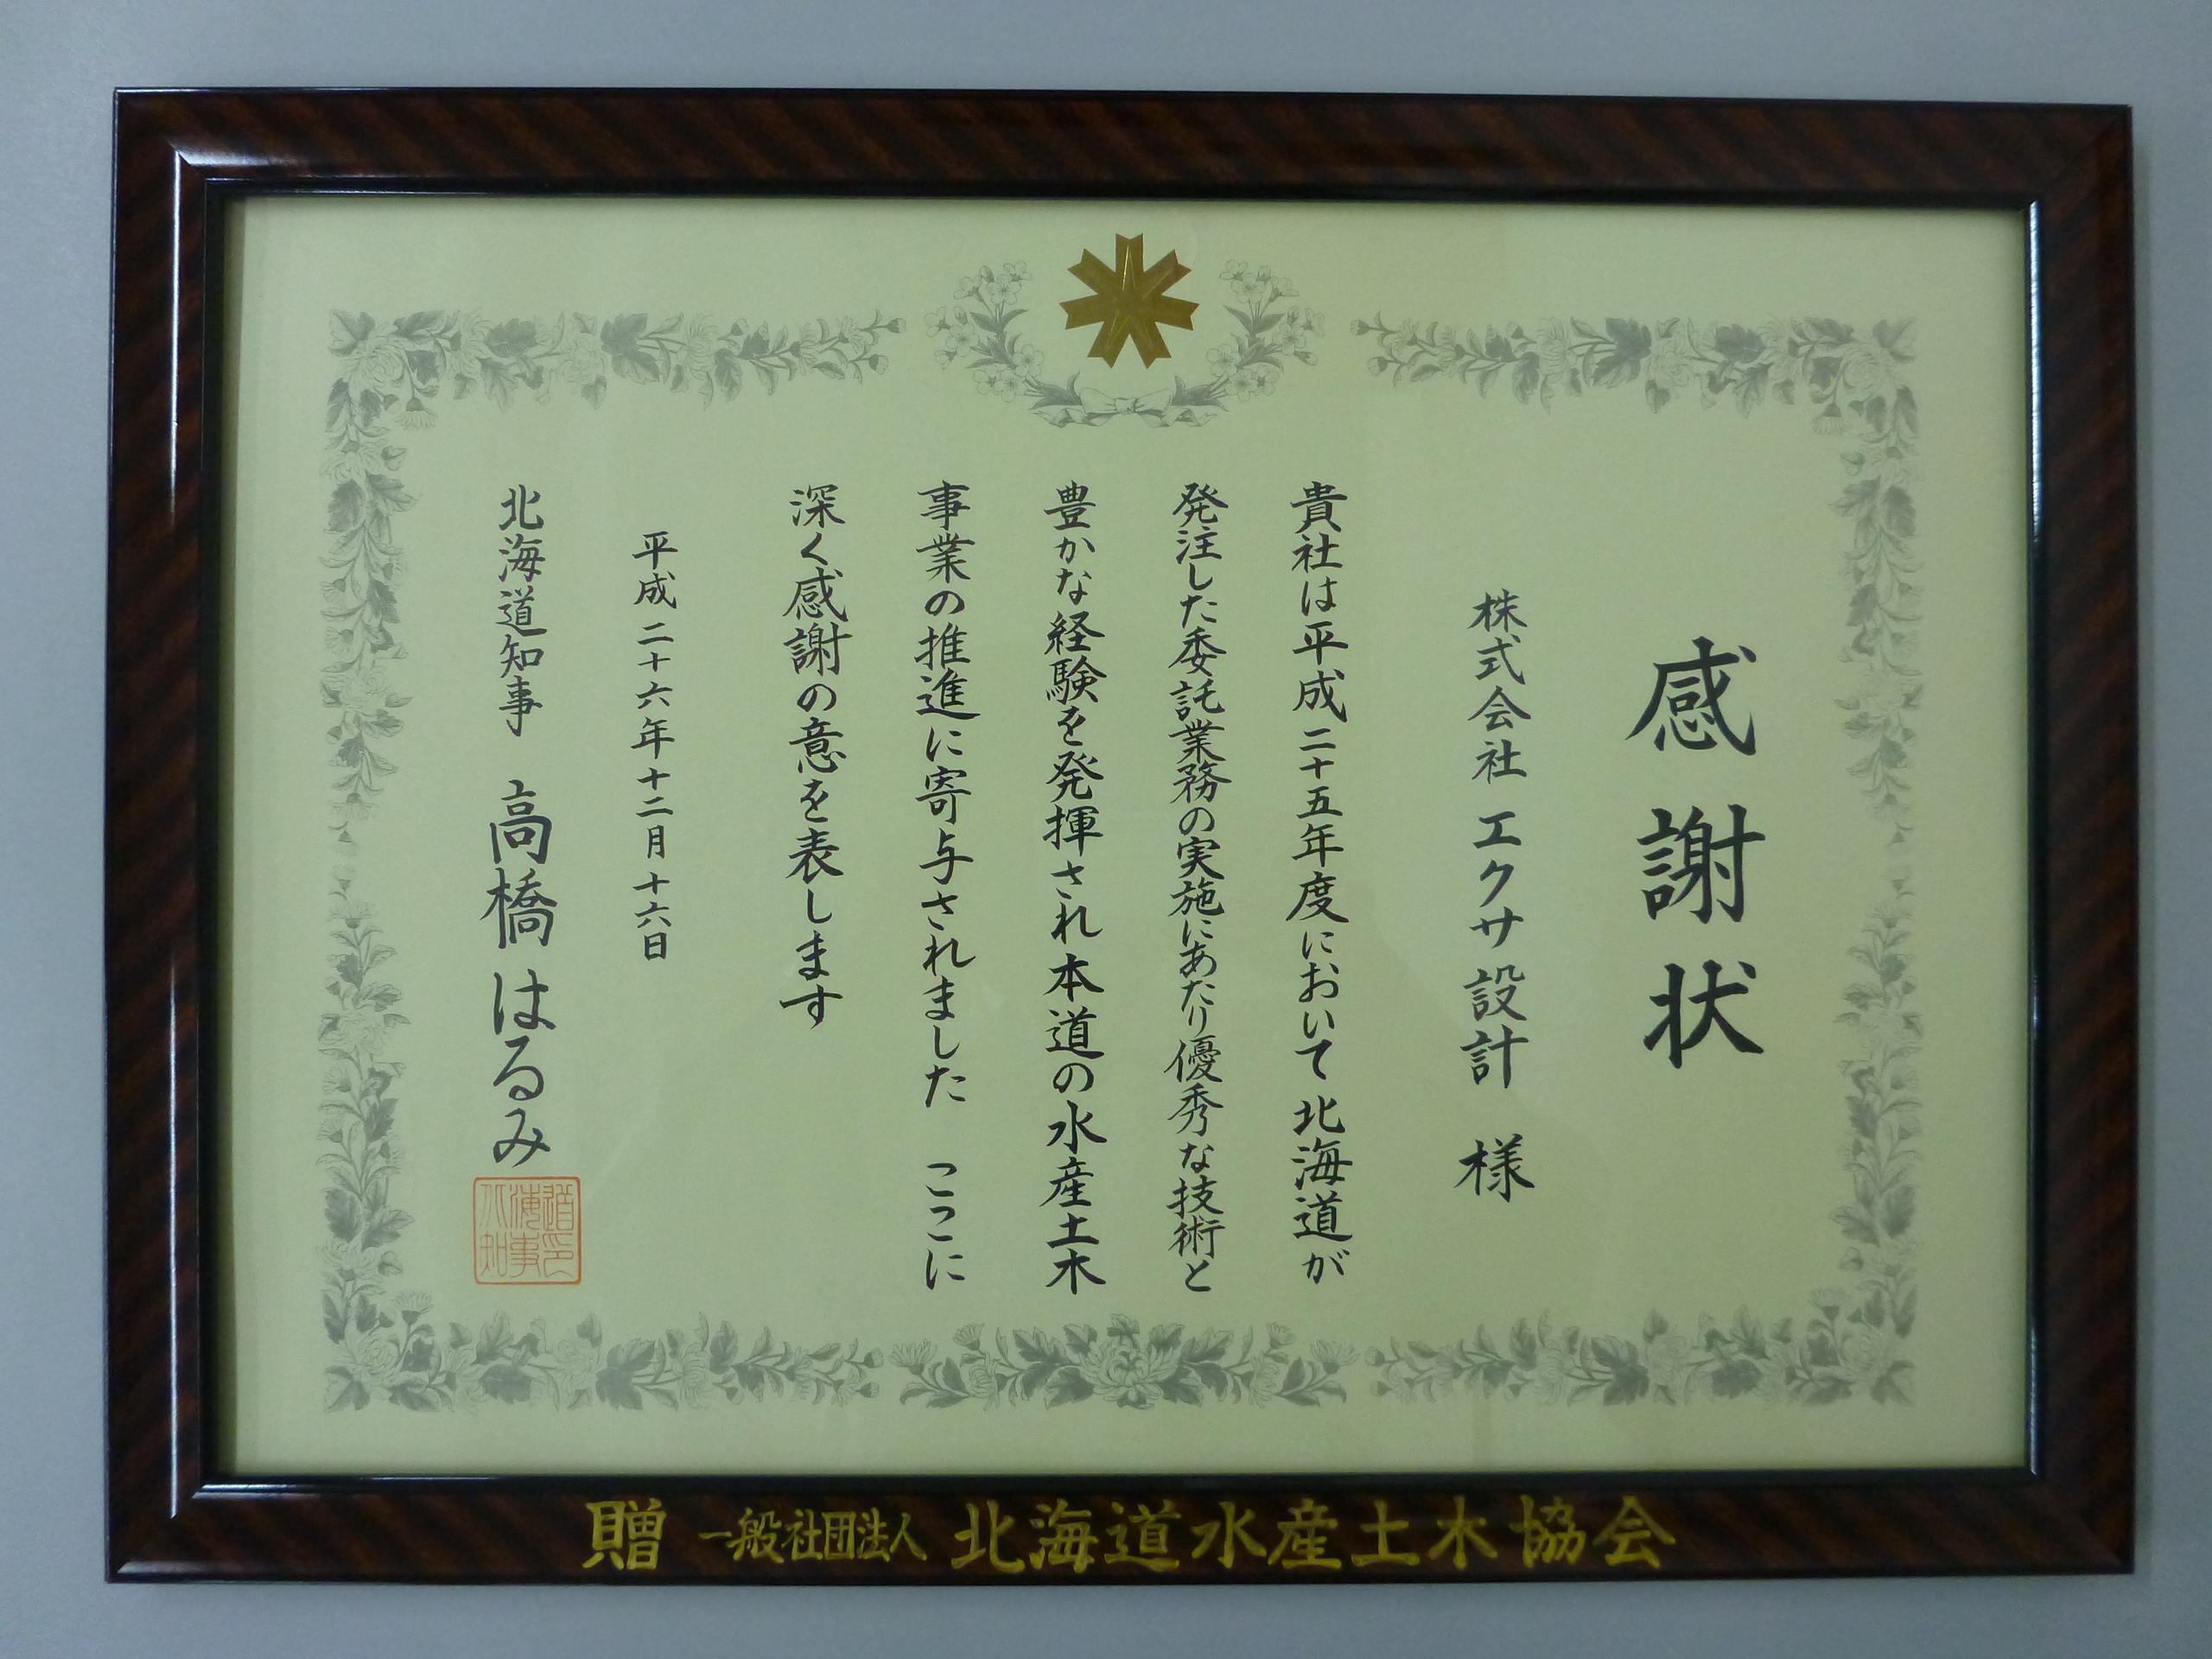 感謝状
株式会社 エクサ設計 様
貴社は平成二十五年度において北海道が
発注した委託業務の実施にあたり優秀な技術と
豊かな経験を発揮され本道の水産土木
事業の推進に寄与されました ここに
深く感謝の意を表します
平成二十六年十二月十六日
北海道知事 高橋はるみ
北海道知事印
贈 一般社団法人 北海道水産土木協会